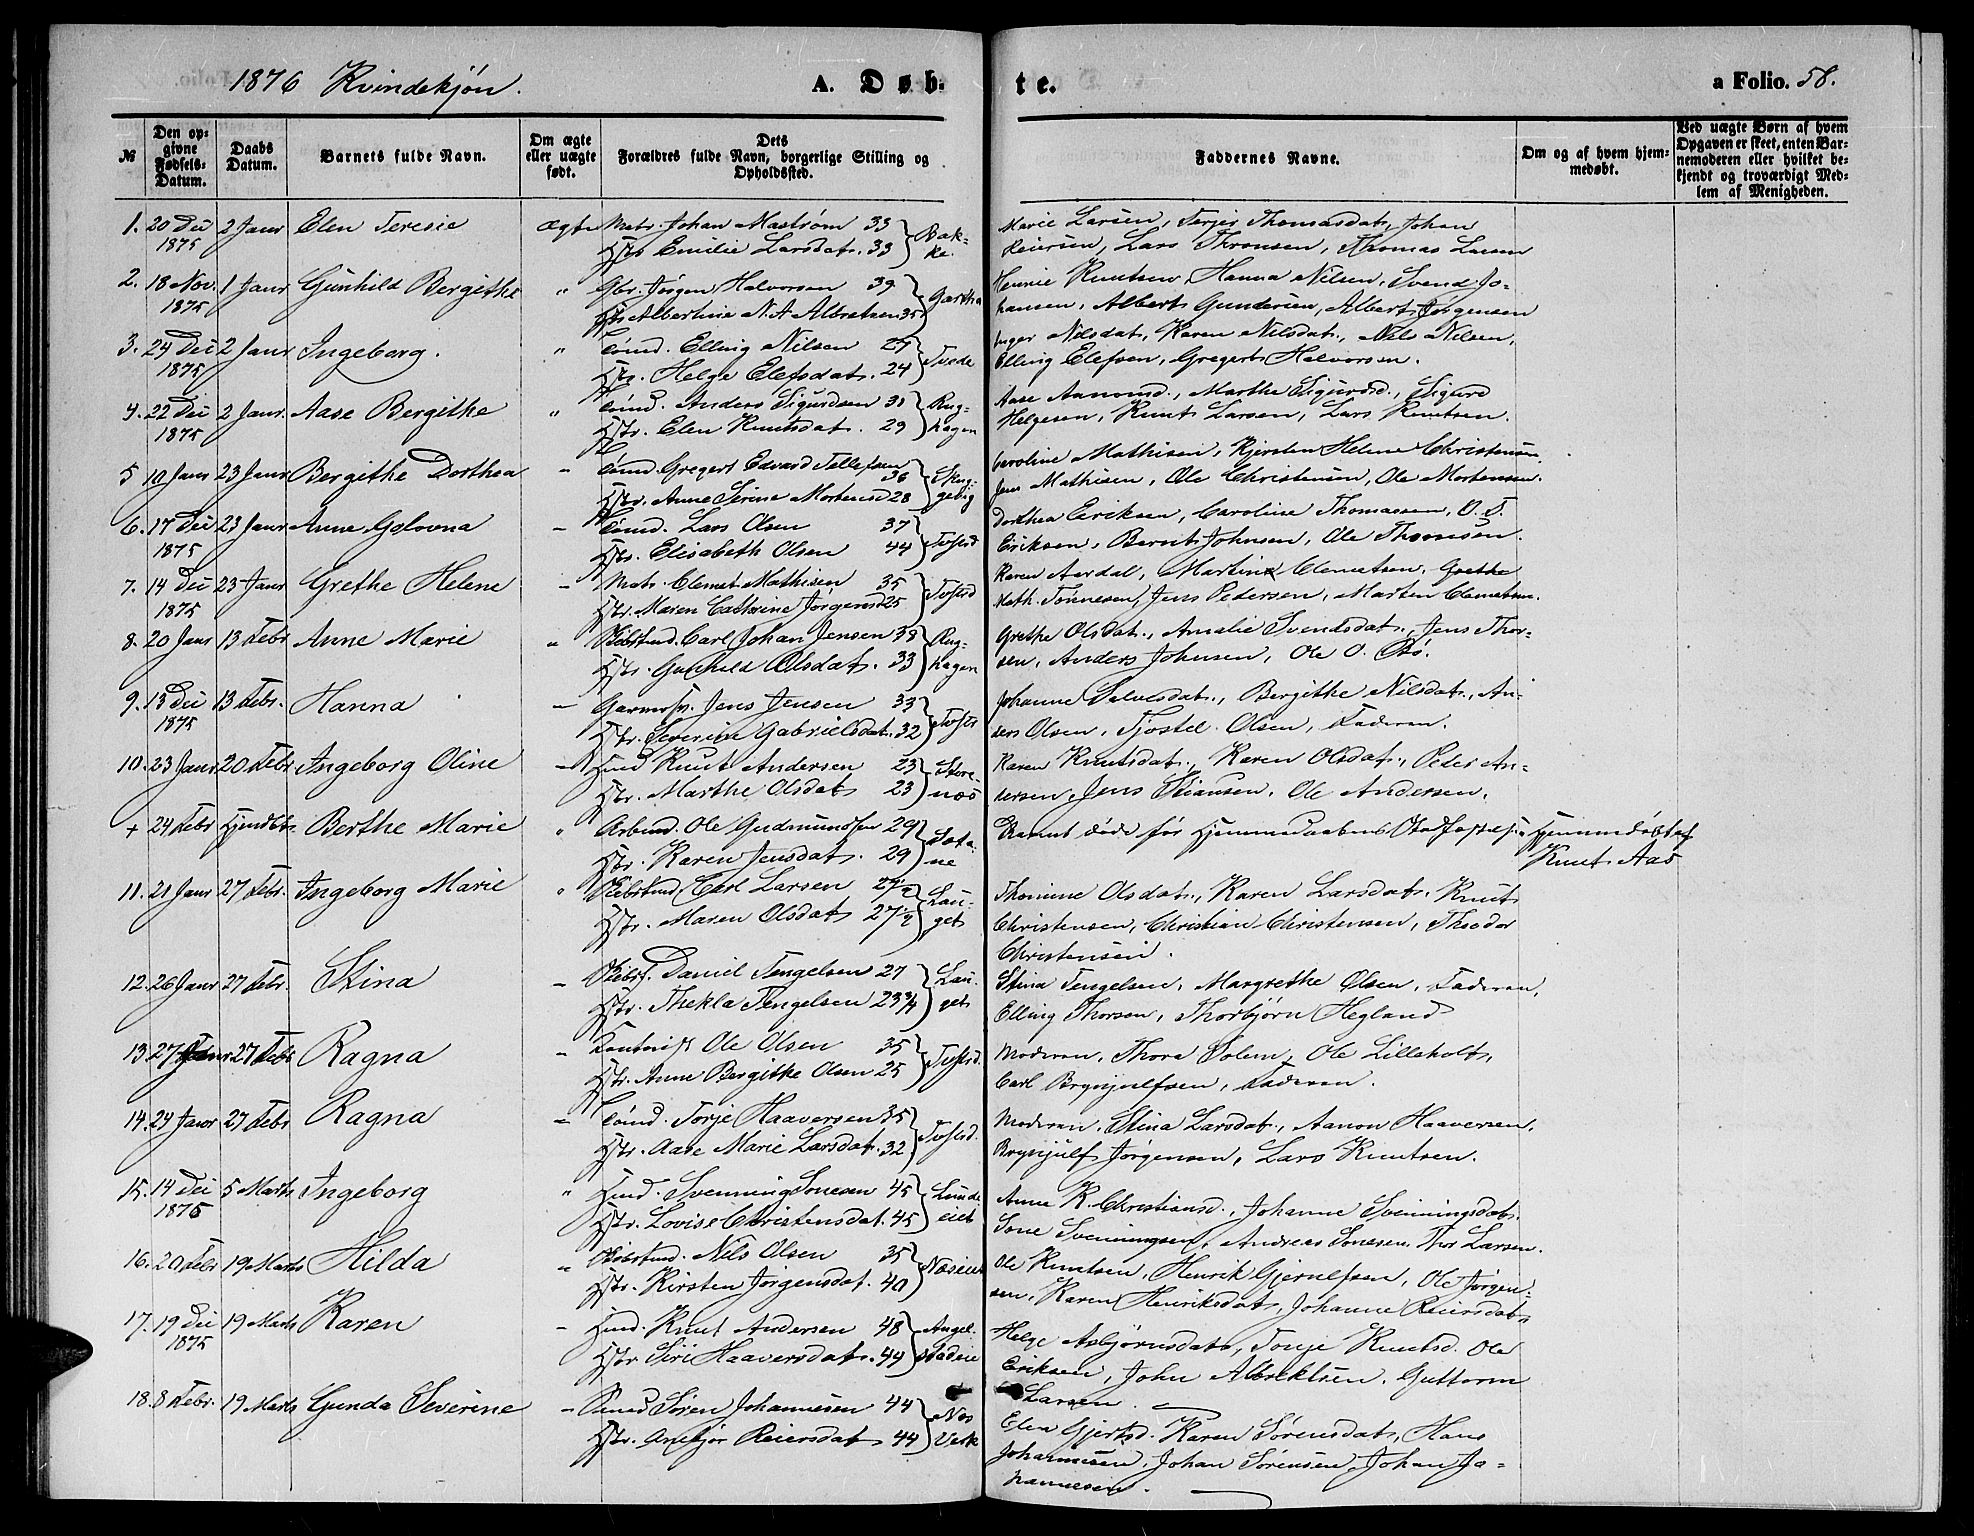 1876 Kvindekjøn.
A. Døb-
te.
a Folio. 58.
№
Den op-
givne
Fødsels-
Datum.
Daabs
Datum.
Barnets fulde Navn.
Om ægte
eller uægte
født.
Dets
Forældres fulde Navn, borgerlige Stilling og
Opholdssted.
Faddernes Navne.
Om og af hvem hjem-
medøbt.
Ved uægte Børn af hvem
Opgaven er skeet, enten Bar-
nemoderen eller hvilket be-
kjendt og troværdigt Med-
lem af Menigheden.
1. 20 Dec 2 Janr Elen Teresie ægte Matr. Johan Mastrøm 33 Bak-
1875 Hstr Emilie Larsdat. 33 ke.
Marie Larsen, Terjer Thomasdat., Johan
Reiersen, Lars Thronsen, Thomas Larsen
2. 18 Nov. 1 Janr Gunhild Bergithe " Gbr. Jørgen Halvorsen 39 Gartha
1875 Hstr Albertine N. A Albretsen 35
Henrie Knutsen, Hanna Nilsen, Svend Jo-
hansen, Albert Gundersen, Albert Jørgensen
3. 24 Dec 2 Janr Ingeborg. " Tømd. Elling Nilsen 29 Tvede
1875 Hstr. Helge Elefsdat. 24
Inger Nilsdat., Karen Nilsdat., Nils Nilsen,
Elling Elefsen, Gregert Halvorsen.
4. 22 Dec 2 Janr. Aase Bergithe " Tømd. Anders Sigurdsen 30 Rug-
1875 Hstr. Elen Knutsdat. 29 hagen
Aase Aanonsd., Marthe Sigurdsd., Sigurd
Helgesen, Knut Larsen, Lars Knutsen.
5 10 Janr 23 Janr Bergithe Dorthea - Tømd. Gregert Edvard Tellefsen
36
Hstr. Anne Serine Mortensd 28
Caroline Mathisen, Kjersten Helene Christensen,
Jens Mathisen, Ole Christensen, Ole Mortensen.
6. 17 Dec 23 Janr Anne Golovna - Tømd. Lars Olsen 37 Tvstrd
1875 Hstr. Elisabeth Olsen 44
Dorthea Eriksen, Caroline Thomassen, O. T.
Eriksen, Bernt Johnsen, Ole Thomsen.
7. 14 Dec 23 Janr Grethe Helene - Matr. Clemet Mathisen 35 Tvstrd
1875 Hstr. Maren Cathrine Jørgensd 25
Karen Aardal, Martine Clemetsen, Grethe
Math. Tønnesen, Jens Pedersen, Morten Clemetsen.
8. 20 Janr 13 Febr Anne Marie " Skibstmd. Carl Johan Jensen 38 Rug-
Hstr. Gunhild Olsdat. 33 hagen
Grethe Olsdat., Amalie Svendsdat., Jens Thor-
sen, Anders Johnsen, Ole O. Bø.
9. 13 Dec 13 Febr. Hanna - Garversv. Jens Jensen 33 Tvstr
1875 Hstr. Severine Gabrielsdat. 32
Johanne Salvesdat., Bergithe Nilsdat., An-
ders Olsen, Tjostel Olsen, Faderen.
10. 23 Janr 20 Febr Ingeborg Oline - Hmd Knut Andersen 23 Store-
Hstr. Marthe Olsdat 23 næs
Karen Knutsdat., Karen Olsdat., Peder An-
dersen, Jens Stiansen, Ole Andersen.
+ 24 Febr Hjemdbt. Berthe Marie " Arbmd. Ole Gudmundsen 29 Løta-
Hstr. Karen Jensdat. 29 ne
Barnet døde før Hjemmedaabens Stadfæstelse Hjemmedøbt af
Knut Aas
11. 21 Janr 27 Febr. Ingeborg Marie " Skibstmd. Carl Larsen 27½ Lau-
Hstr. Maren Olsdat 27½ get
Thomine Olsdat., Karen Larsdat., Knut
Christensen, Christian Christensen, Theodor
Christensen.
12. 26 Janr 27 Febr. Stina - Skibsf. Daniel Tengelsen 27 Lau-
Hstr. Thekla Tengelsen 23¾ get
Stina Tengelsen, Margrethe Olsen, Faderen,
Elling Thorsen, Thorbjørn Hegland
13. 27 Janr 27 Febr Ragna " Kontorist Ole Olsen 35 Tvstrd.
Hstr. Anne Bergithe Olsen 25
Moderen, Thora Solem, Ole Lilleholt,
Carl Brynjulfsen, Faderen.
14. 24 Janr 27 Febr Ragna - Tømd. Torje Haaversen 35 Tvstrd.
Hstr. Aase Marie Larsdat. 32
Moderen, Stina Larsdat., Aanon Haaversen,
Brynjulf Jørgensen, Lars Knutsen.
15. 14 Dec 5 Marts Ingeborg " Hmd. Svenning Sonesen 45 Lunde
1876 Hstr. Lovise Christensdat. 45 eiet
Anne K. Christiansd., Johanne Svenningsdat.
Sone Svenningsen, Andreas Sonesen, Thor Larsen.
16. 20 Febr 19 Marts Hilda " Skibstmd. Nils Olsen 35 Næseiet
Hstr. Kirsten Jørgensdat. 40
Ole Knutsen, Henrik Gjernelfsen, Ole Jørgen-
sen, Karen Henriksdat, Johanne Reiersdat.
17. 19 Dec 19 Marts Karen - Hmd. Knut Andersen 48 Angel-
1875 Hstr Siri Haaversdat. 44 stadeie
Helge Asbjørnsdat., Tonje Knutsd. Ole
Eriksen, John Albrektsen, Guttorm
Larsen.
18. 8 Febr. 19 Marts Gunda Severine - Smed Søren Johannesen 44 Næs
Hstr. Anebjør Reiersdat 44 Verk
Elen Gjertsd. Karen Sørensdat, Hans
Johannesen, Johan Sørensen, Johan Jo-
hannesen.